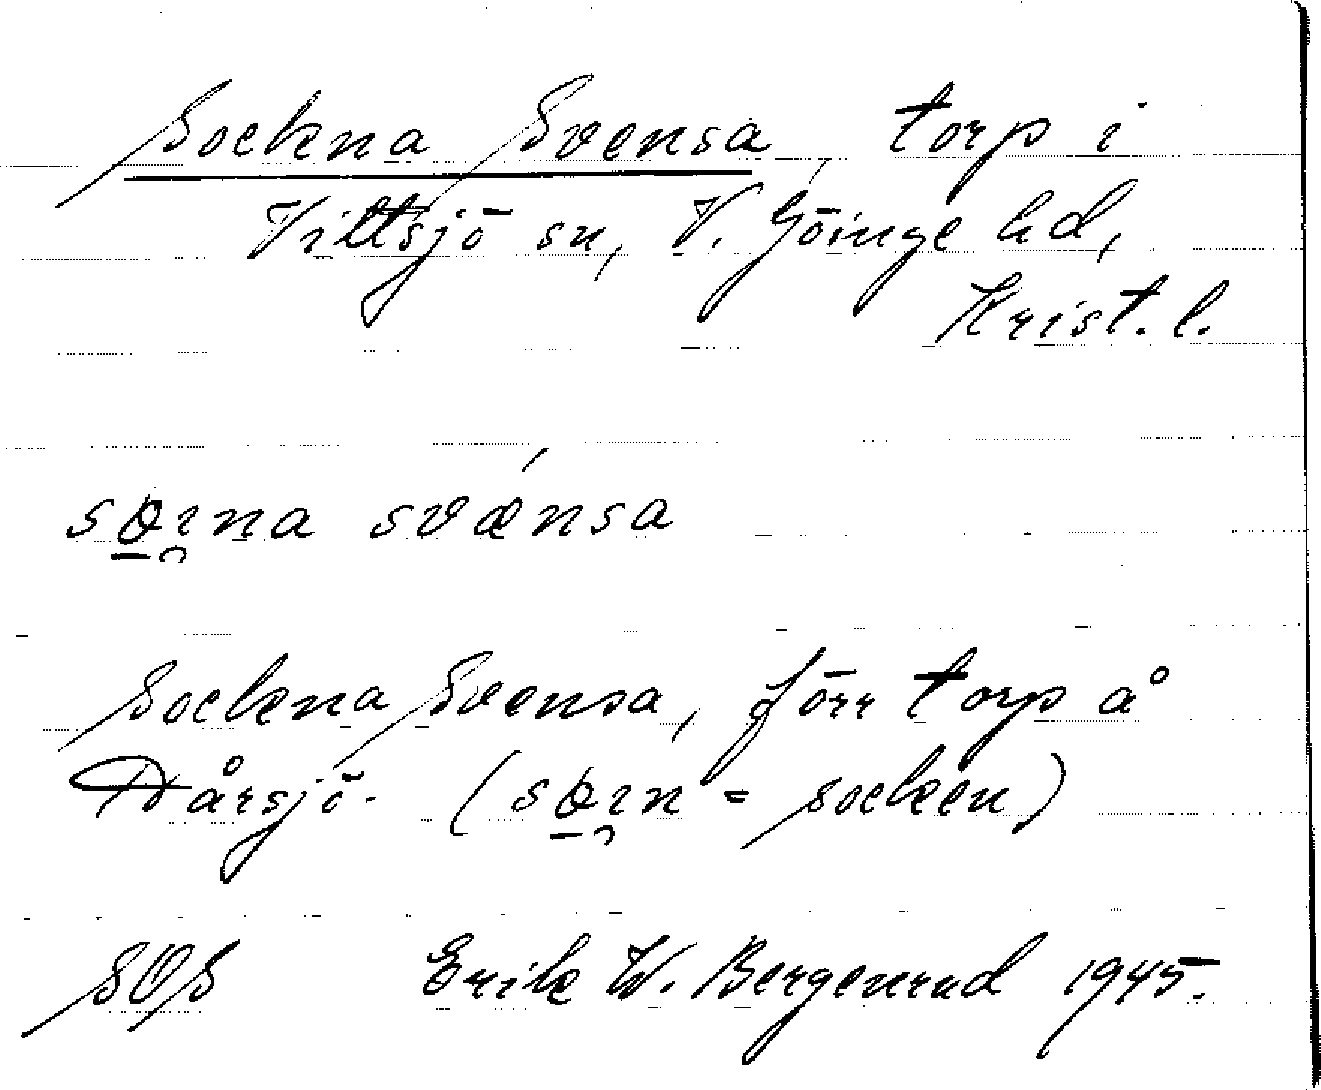 Sockna Svensa, torp i
Vittsjö sn, V. Göinge hd,
Krist. l.
svænsa
Sockna Svensa, förr torp å
Dårsjö. ( = socken)
SOS Erik W. Bergenrud 1945.